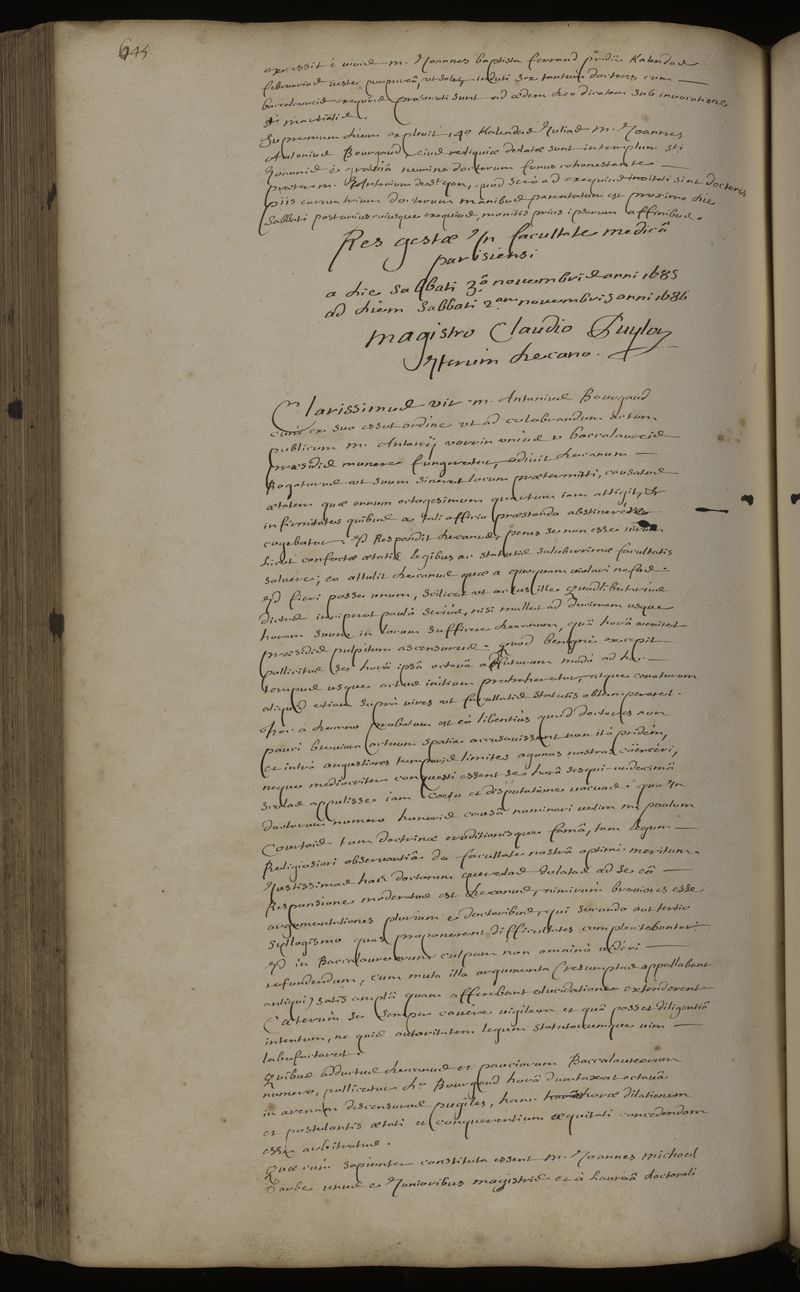 645
excessit è vivis m. Joannes baptista ferrand pridie Kalendas
februarias veste purpureâ, ut solet, induti sex tantum doctores cum
baccalaureis exequias prosecuti sunt ad ædem deo dicatam sub invocatione
sti martialis.
Supremum diem explevit 14° Kalendas Julias m. Joannes
Antonius Bourgaud, eius reliquiæ delatæ sunt in templum sti
Joannis è graviâ nemine doctorum funus cohonestante
præter m. Antonium de st yon, quod serò ad exequias invitati sint doctores
piis eorum trium doctorum manibus parentatum est proximo die
Sabbati posterius cuiusque exequias, monitis prius ipsorum affinibus.
Res gestæ In facultate medicâ
parisiensi
a die Sabbati 3â novembris anni 1685
ad diem Sabbati 2am novembris anni 1686
magistro Claudio Puylon
Iterum decano.
Clarissimus vir m. Antonius Bourgaud
cum ex suo esset ordine ut ad celebrandum actum
publicum m. Antonij vorrin unius e baccalaureis
præsidis munere fungeretur, adivit decanum
Rogaturus ut suum sineret locum prætermitti, causatus
ætatem quæ annum octogesimum quartum iam attigit, &
infirmitates quibus a tali officio præstando abstinere
cogebatur. Respondit decanus, penes se non esse virum
licet confectæ ætatis legibus ac statutis saluberrimæ facultatis
solvere; ea attulit decanus quæ a quoquam violari nefas.
Id fieri posse unum, scilicet ut actus ille quodlibetarius
dictus inciperet paulò seriùs, nisi mallet ad decimam usque
horam suum in locum sufficere decanum, quâ horâ veniret
præsidis pulpitum ascensurus. Quod benignè excepit
pollicitus se horâ ipsâ octavâ affuturum modò ad hoc
tempus usque actus initium protraheretur, atque conaturum
aliquid etiam suprà vires ut facultatis statutis obtemperaret.
hoc a decano probatum est eò libentiùs quod doctores non
pauci breviora actuum spatia accusavissent non ità pridem,
et intrà angustiores temporis limites agonas nostros coërceri,
neque mediocriter conquesti essent se horâ sesqui undecimâ
Scolas appulisse iam coetu et disputatione vacuas. quo In
doctorum numero honoris causâ nominari velim m. paulum
Courtois tum doctrinæ eruditionisque famâ, tum legum
Religiosiori observantiâ de facultate nostrâ optimè meritum.
Justissimas has doctorum querelas delatas ad se eâ
Responsione moderatus est decanus, nimirùm breviores esse
argumentationes plurium e doctoribus, qui secundo aut tertio
Syllogismo quas proponerent difficultates complectebantur.
Id in Baccalaureorum culpam non omninò videri
refundendum, cum muta illa argumenta (resumptas appellabant
antiqui) satis amplâ quam afferebant elucidatione extenderent
Cæterùm se semper cavere vigilem et quâ posset diligentiâ
intentum, ne quid autoritatem legum statutorumque vim
labefactaret.
Quibus adductus decanus et pauciorum Baccalaureorum
numero, pollicetur do Bourgaud horâ dumtaxat octavâ
in arenam descensuros pugiles, hanc horæ dilationem
et postulantis ætati et conquerentium æquitati concedendam
esse arbitratus.
Quæ cum sapienter constituta essent m. Joannes michael
Garbe unus e Junioribus magistris et à laureâ doctorali